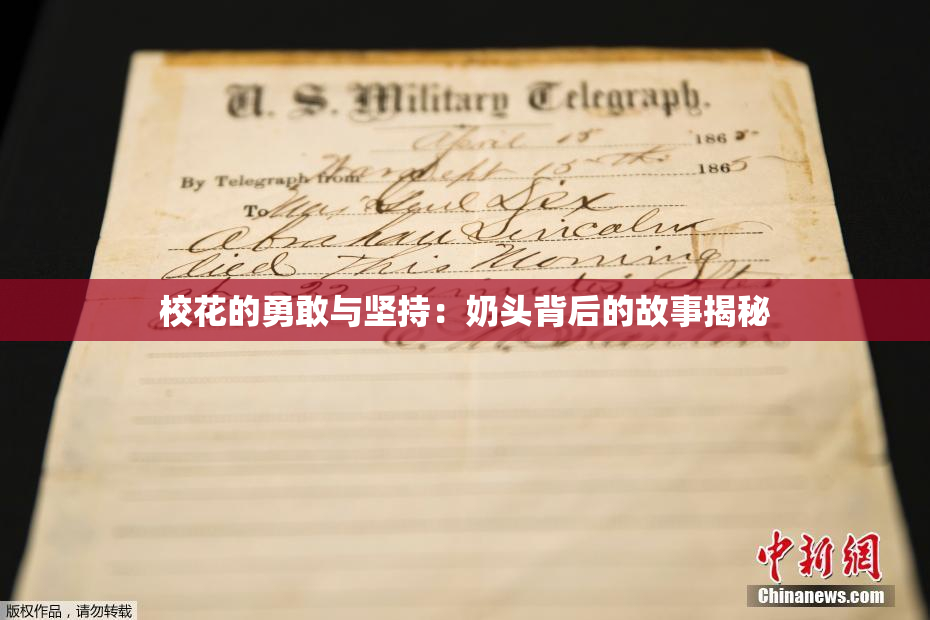 U. S. Military Telegraph.
April 15 1865
By Telegraph from War Dept 15th 1865
To Maj Genl Dix
Abraham Lincoln
died This Morning
at 22 minutes after
校花的勇敢与坚持：奶头背后的故事揭秘
中新网
Chinanews.com
版权作品，请勿转载